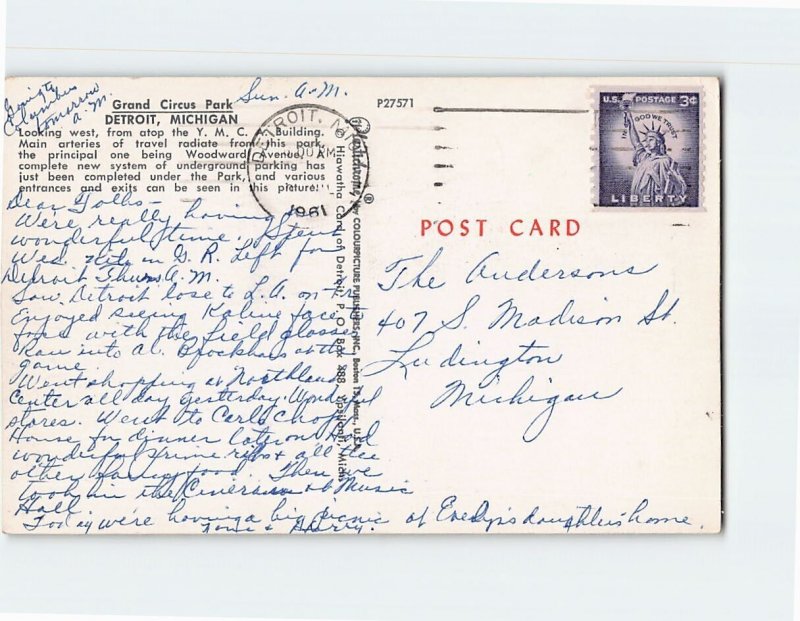 Going to
Columbus
tomorrow
A.M.
Sun. A.M.
Grand Circus Park
DETROIT, MICHIGAN
Looking west, from atop the Y. M. C. A. Building.
Main arteries of travel radiate from this park,
the principal one being Woodward Avenue. A
complete new system of underground parking has
just been completed under the Park, and various
entrances and exits can be seen in this picture.
Dear Folks—
We're really having a
wonderful time. Spent
Wed. nite in G. R. Left for
Detroit Thurs A.M.
Saw Detroit lose to L.A. on Fri
Enjoyed seeing Kaline face to
face with the field glasses
Ran into Al. Brockhaus at the
game.
Went shopping at Northland
Center all day yesterday. Wonderful
stores. Went to Carl's Chop
House for dinner later on. Had
wonderful prime ribs + all the
other fancy food. Then we
took in the Cinerama at Music
Hall.
Today we're having a big picnic at Evelyn's daughter's home.
& Harry.
P27571
DETROIT, MICH
PM
1961
Plastichrome ® by COLOURPICTURE PUBLISHERS, INC., Boston 15, Mass., U.S.A.
Hiawatha Card of Detroit, P. O. Box 388, Ypsilanti, Mich.
U.S. POSTAGE 3¢
IN GOD WE TRUST
LIBERTY
POST CARD
The Andersons
407 S. Madison St.
Ludington
Michigan